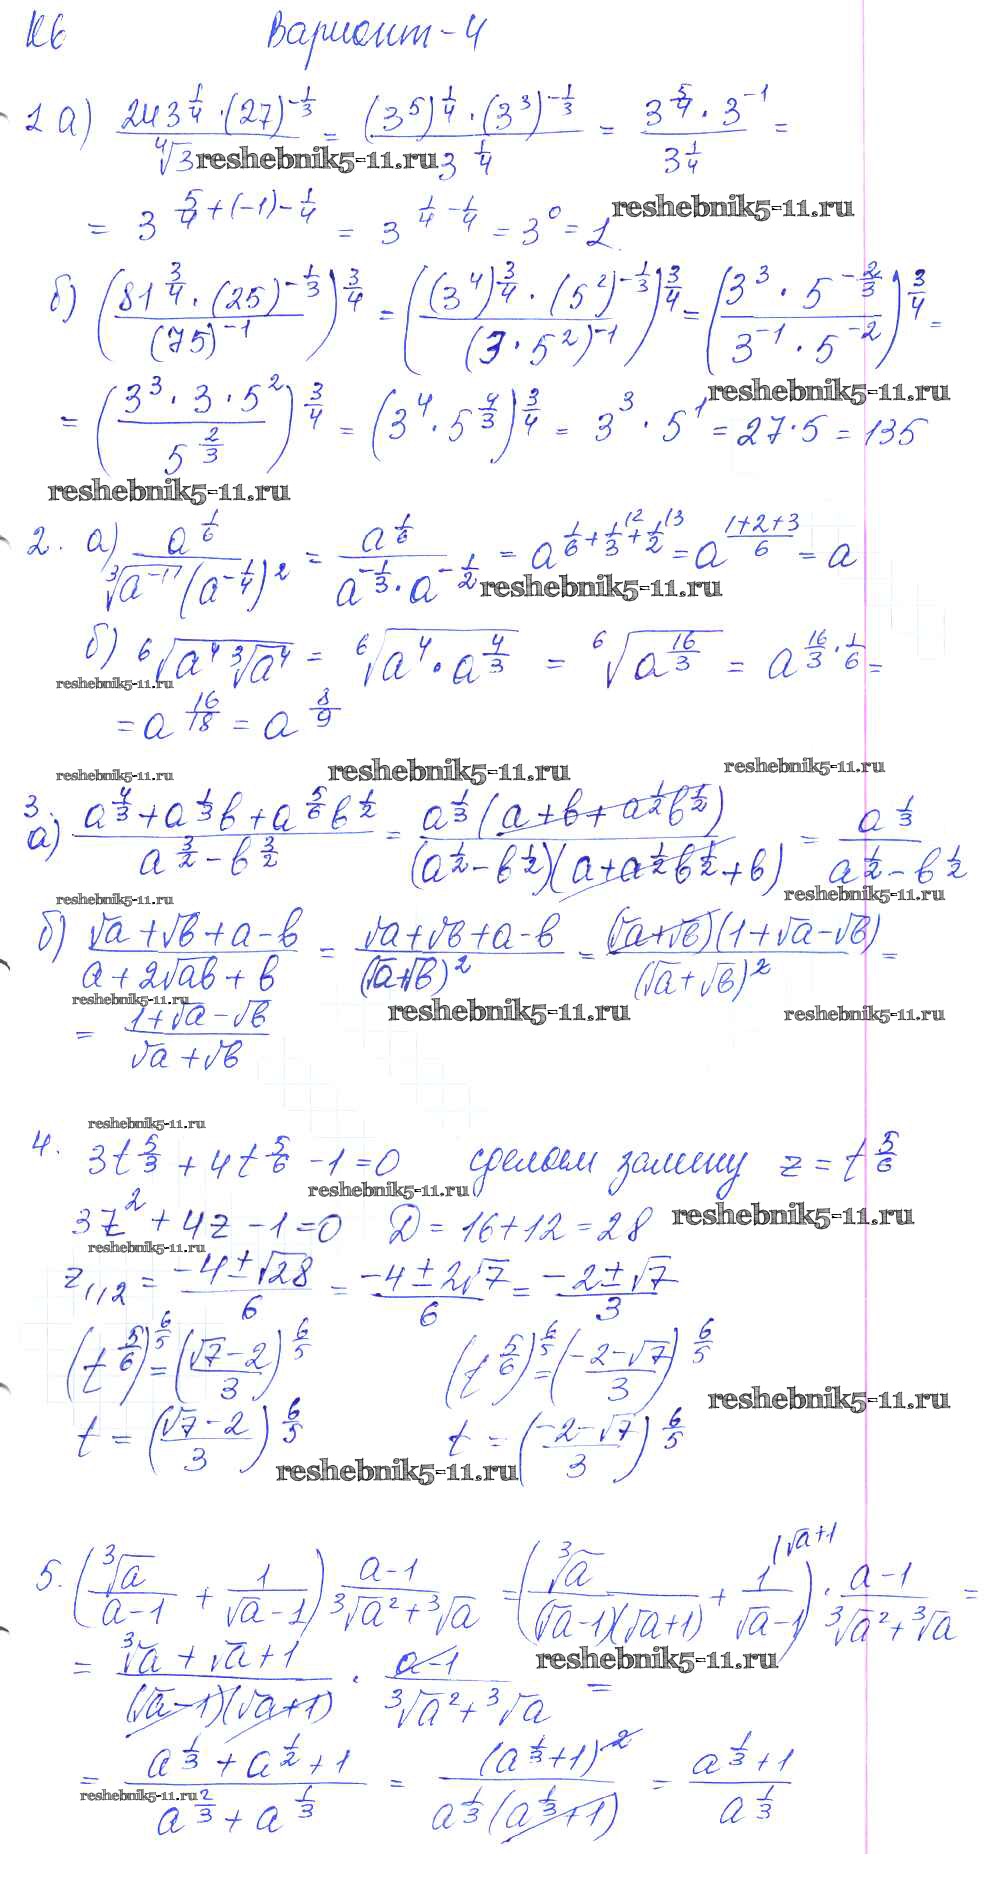 К6 Вариант-4
1 а) (243^{1/4} · (27)^{-1/3}) / ⁴√3 = ((3^5)^{1/4} · (3^3)^{-1/3}) / 3^{1/4} = (3^{5/4} · 3^{-1}) / 3^{1/4} =
reshebnik5-11.ru
= 3^{5/4+(-1)-1/4} = 3^{1/4-1/4} = 3^0 = 1
reshebnik5-11.ru
б) ((81^{3/4} · (25)^{-1/3}) / (75)^{-1})^{3/4} = (((3^4)^{3/4} · (5^2)^{-1/3}) / (3 · 5^2)^{-1})^{3/4} = ((3^3 · 5^{-2/3}) / (3^{-1} · 5^{-2}))^{3/4} =
reshebnik5-11.ru
= ((3^3 · 3 · 5^2) / 5^{2/3})^{3/4} = (3^4 · 5^{4/3})^{3/4} = 3^3 · 5^1 = 27 · 5 = 135
reshebnik5-11.ru
2. а) a^{1/6} / (³√a^{-1} (a^{-1/4})^2) = a^{1/6} / (a^{-1/3} · a^{-1/2}) = a^{1/6+1/3(2+1/2(3} = a^{(1+2+3)/6} = a
reshebnik5-11.ru
б) ⁶√(a^4 ³√a^4) = ⁶√(a^4 · a^{4/3}) = ⁶√(a^{16/3}) = a^{16/3 · 1/6} =
reshebnik5-11.ru
= a^{16/18} = a^{8/9}
reshebnik5-11.ru reshebnik5-11.ru reshebnik5-11.ru
3. а) (a^{4/3} + a^{1/3}b + a^{5/6}b^{1/2}) / (a^{3/2} - b^{3/2}) = a^{1/3}(a + b + a^{1/2}b^{1/2}) / ((a^{1/2} - b^{1/2})(a + a^{1/2}b^{1/2} + b)) = a^{1/3} / (a^{1/2} - b^{1/2})
reshebnik5-11.ru reshebnik5-11.ru
б) (√a + √b + a - b) / (a + 2√ab + b) = (√a + √b + a - b) / (√a+√b)^2 = (√a+√b)(1 + √a - √b) / (√a + √b)^2 =
reshebnik5-11.ru reshebnik5-11.ru reshebnik5-11.ru
= (1 + √a - √b) / (√a + √b)
reshebnik5-11.ru
4. 3t^{5/3} + 4t^{5/6} - 1 = 0 сделаем замену z = t^{5/6}
reshebnik5-11.ru
3z^2 + 4z - 1 = 0 D = 16 + 12 = 28
reshebnik5-11.ru
reshebnik5-11.ru
z_{1,2} = (-4 ± √28) / 6 = (-4 ± 2√7) / 6 = (-2 ± √7) / 3
(t^{5/6})^{6/5} = ((√7 - 2) / 3)^{6/5} (t^{5/6})^{6/5} = ((-2 - √7) / 3)^{6/5}
reshebnik5-11.ru
t = ((√7 - 2) / 3)^{6/5} t = ((-2 - √7) / 3)^{6/5}
reshebnik5-11.ru
5. (³√a / (a - 1) + 1 / (√a - 1)) (a - 1) / (³√a^2 + ³√a) = (³√a / ((√a - 1)(√a + 1)) + 1(√a+1 / (√a - 1)) · (a - 1) / (³√a^2 + ³√a) =
reshebnik5-11.ru
= (³√a + √a + 1) / ((√a - 1)(√a + 1)) · (a - 1) / (³√a^2 + ³√a) =
= (a^{1/3} + a^{1/2} + 1) / (a^{2/3} + a^{1/3}) = (a^{1/3} + 1)^2 / (a^{1/3}(a^{1/3} + 1)) = (a^{1/3} + 1) / a^{1/3}
reshebnik5-11.ru